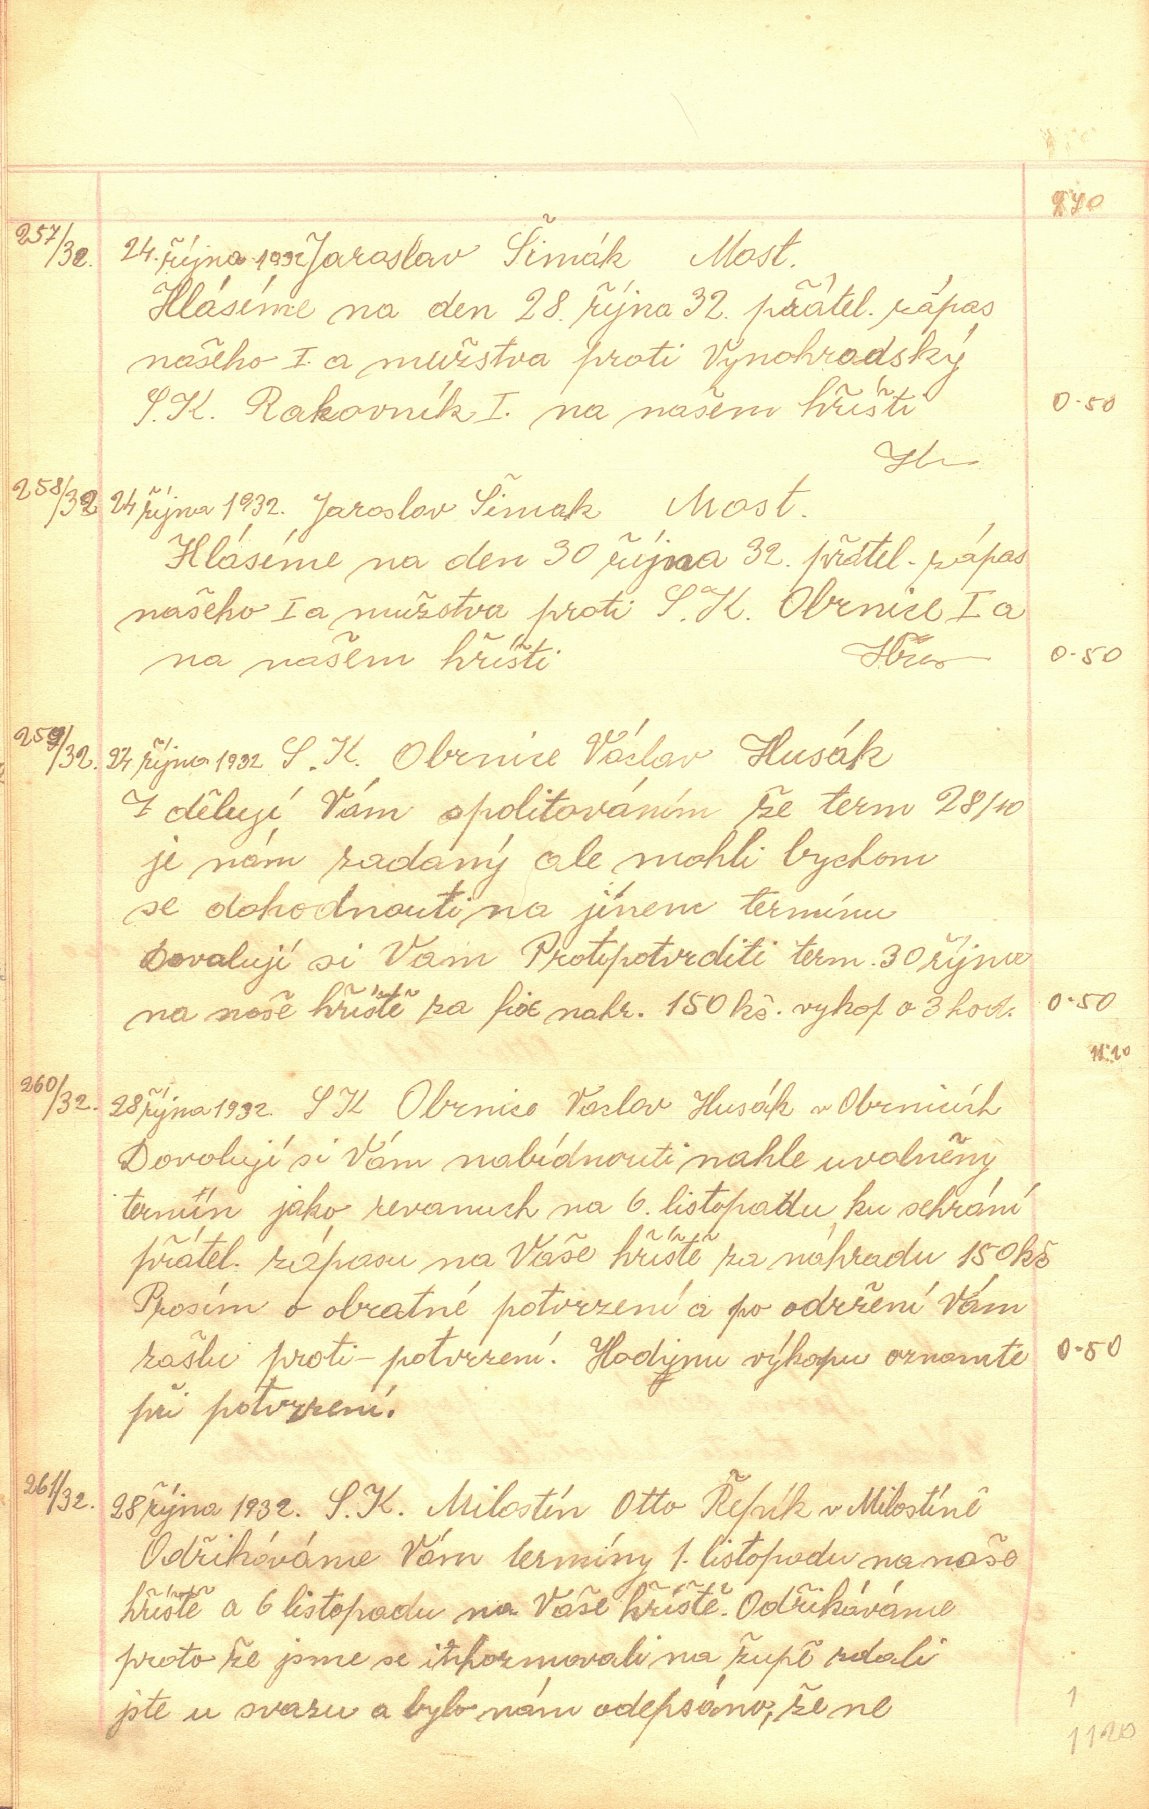 9.70
257/32. 24. října 1932 Jaroslav Šimák Most.
Hlásíme na den 28. října 32. přátel. zápas
našeho I. a mužstva proti Vynohradský
S.K. Rakovník I. na našem hřišti 0.50
258/32 24 října 1932. Jaroslav Šimak Most.
Hlásíme na den 30 října 32. přátel. zápas
našeho I a mužstva proti S.K. Obrnice I a
na našem hříšti 0.50
259/32. 24 října 1932 S.K. Obrnice Václav Husák
Z dělují Vám spolitováním že term 28/10
je nám zadaný ale mohli bychom
se dohodnouti na jínem termínu
Dovalují si Vám Protipotvrditi term. 30 října
na naše hříště za fix nahr. 150 kč. vykop o 3 hod. 0.50
11.20
260/32. 28 října 1932 S K Obrnice Václav Husák v Obrnicích
Dovolují si Vám nabídnouti nahle uvolněny
termín jako revanuch na 6. listopadu ku sehrání
přátel. zápasu na Vaše hříště za náhradu 150 kč
Prosím o obratné potvrzení a po održení Vám
zašlu proti-potvrzení. Hodynu výkopu oznamte 0.50
při potvrzení.
261/32. 28 října 1932. S.K. Milostín Otto Řepík v Milostíně
Odřikáváme Vám termíny 1. listopadu na naše
hříště a 6 listopadu na Vaše hříště. Odřikáváme
proto že jsme se informovali na župě zdali
jste u svazu a bylo nám odepsáno, že ne
1
11 20